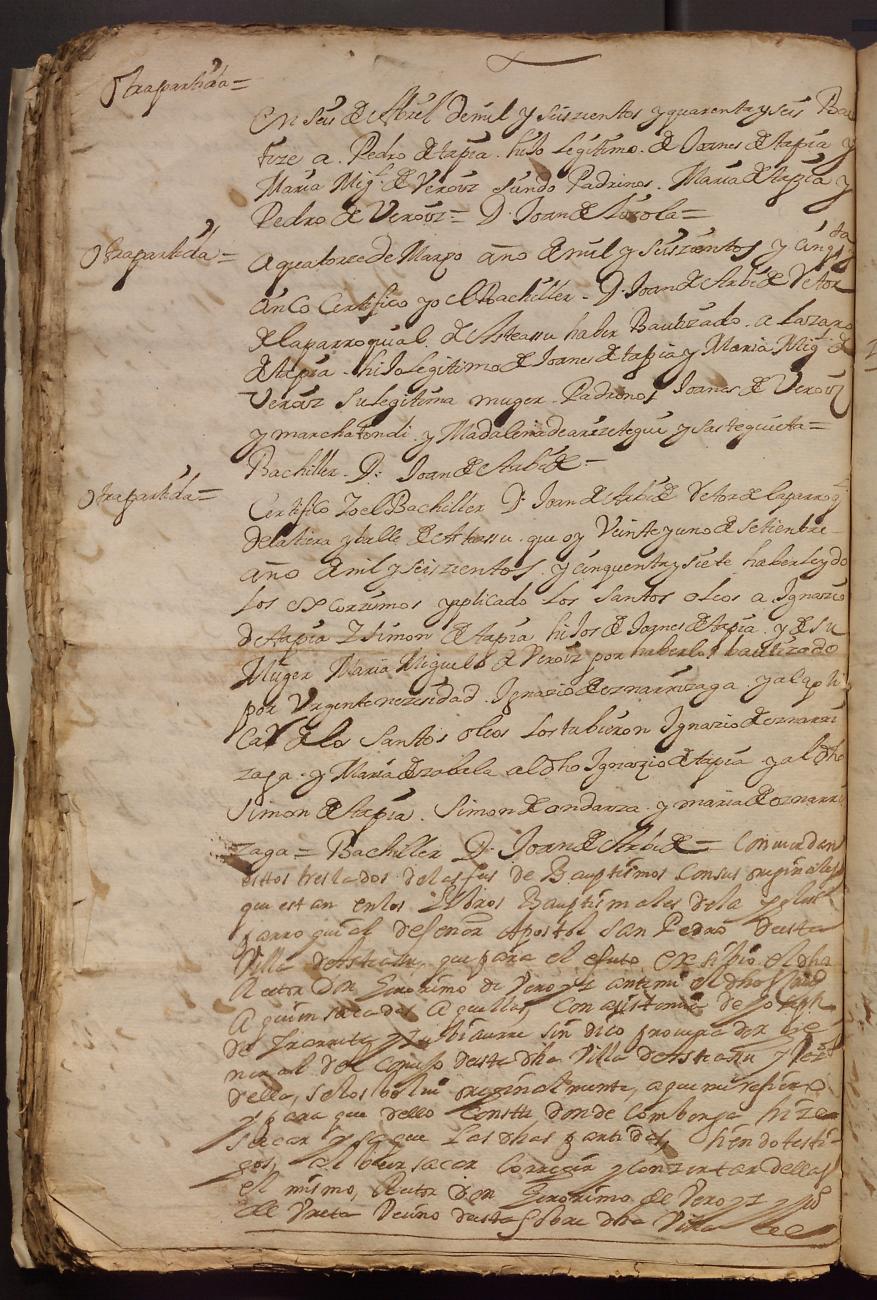 Otra partida =
En seis de Abril de mil y seiszientos y quarenta y seis Bau
tize a Pedro de tapia hijo legitimo de Joanes de tapia y
Maria Migl de Veroiz siendo Padrinos Maria de tapia y
Pedro de Veroiz = D. Joan de
Otra partida =
a quatorze de Março año de mil y seiszientos y cinqta y
cinco Certifico yo el Bachiller D. Joan de Arbide Retor
de la parroquial de Asteassu haber Bautizado a Lazaro
de tapia hijo legitimo de Joanes de tapia y Maria Migl de
Veroiz su legitima muger Padrinos Joanes de Veroiz
y marchatondi y Madalena de arizetegui y sasteguieta =
Bachiller D. Joan de Arbide =
Otra partida =
Certifico Yo el Bachiller D. Joan de Arbide Retor de la parroql
de la tierra y balle de Asteassu que oy Veinte y uno de setienbre
año de mil y seiszientos y cinquenta y siete haber leydo
los exorzismos y aplicado los Santos oleos a Ignazio
de tapia Y simon de tapia hijos de Joanes de tapia y de su
Muger Maria Miguel de Veroiz por haberlos bautizado
por Urgente nezesidad Ignazio de eznarrizaga y al apli
car de los Santos oleos los tubieron Ignazio de eznarri
zaga y Maria de zabala al dho Ignazio de tapia y al dho
Simon de tapia Simon de andarza y maria de eznarri
zaga = Bachiller D. Joan de Arbide = Concuerdan
estos treslados de las fees de Bauptismos con sus originales
que estan en los Libros Bauptismales de la yglesia
parroquial de señor Apostol san Pedro desta
Villa de Asteasu, que para el efeto exsibio el dho
Retor Don Geronimo de Veroyz ante mi el dho
a quien sacadas aquellas con asistencia de Joseph
de Yrarreta y Ybiaurre sindico procurador ge
neral del Conçejo desta dha Villa de Asteasu y
della, se los bolvi originalmente, a que me refiero
y para que dello conste donde combenga hize
sacar y saque las dhas partidas, siendo testi
gos, al veer sacar corregir y conzertar dellas
el mismo Retor Don Geronimo de Veroyz y
de Vreta Vezino desta sobre dha Villa